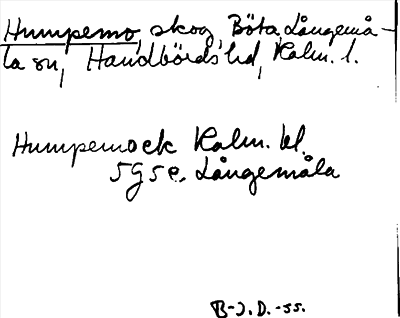 Humpemo, skog, Böta, Långemå-
la sn, Handbörds hd, Kalm. l.
Humpemock Kalm. bl.
5 g 5 e, Långemåla
B-J.D. -55.